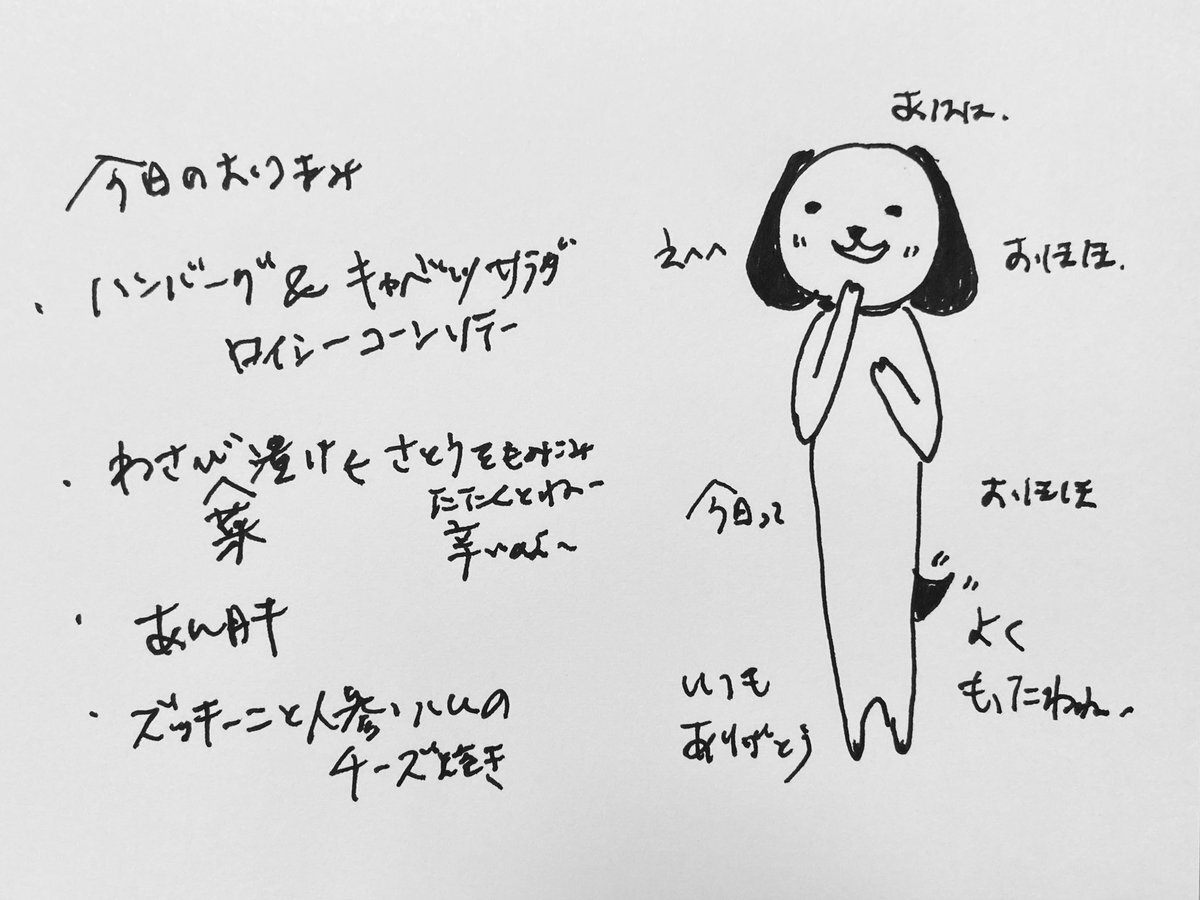 今日のおつまみ
・ハンバーグ&キャベツサラダ
ロイシーコーンソテー
・わさび漬け← さとうをもみこみ
菜 たたくとねー
辛いのよ〜
・あん肝
・ズッキーニと人参、ハムの
チーズ焼き
あはは.
えへへ
おほほ.
今日って
おほほ
よく
もってたわね〜
いつも
ありがとう